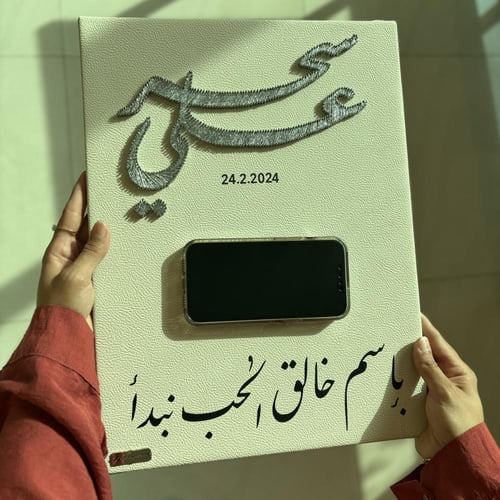 سحر
علي
24.2.2024
بإسم خالق الحب نبدأ